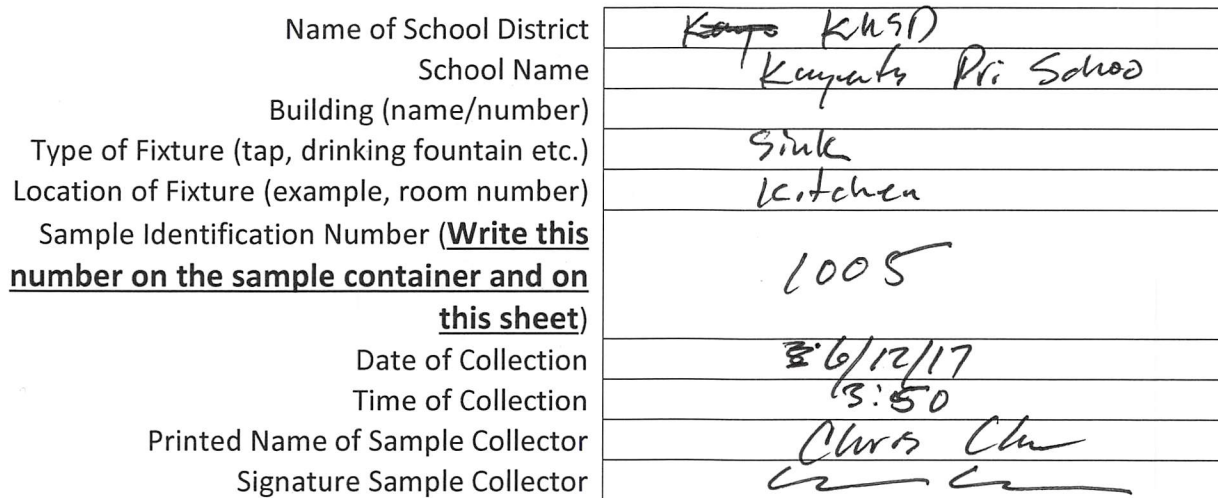 Name of School District KhSD
School Name Pri Schoo
Building (name/number)
Type of Fixture (tap, drinking fountain etc.) Sink
Location of Fixture (example, room number) Kitchen
Sample Identification Number (Write this
number on the sample container and on
this sheet) 1005
Date of Collection 6/12/17
Time of Collection 3:50
Printed Name of Sample Collector Chris
Signature Sample Collector